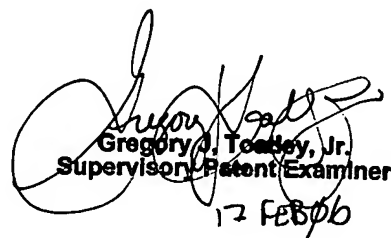 Gregory J. Toatley, Jr.
Supervisory Patent Examiner
17 FEB 06